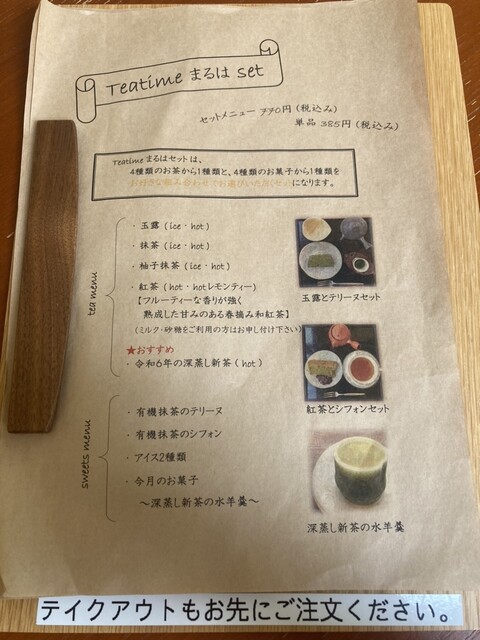 Teatime まるは set
セットメニュー 770円 (税込み)
単品 385円 (税込み)
Teatime まるはセット は、
4種類のお茶から1種類と、4種類のお菓子から1種類を
お好きな組み合わせでお選びいただくセットになります。
tea menu
・玉露 (ice・hot)
・抹茶 (ice・hot)
・柚子抹茶 (ice・hot)
・紅茶 (hot・hotレモンティー)
【フルーティーな香りが強く
熟成した甘みのある春摘み和紅茶】
(ミルク・砂糖をご利用の方はお申し付け下さい)
★おすすめ
・令和6年の深蒸し新茶 (hot)
玉露とテリーヌセット
紅茶とシフォンセット
sweets menu
・有機抹茶のテリーヌ
・有機抹茶のシフォン
・アイス2種類
・今月のお菓子
～深蒸し新茶の水羊羹～
深蒸し新茶の水羊羹
テイクアウトもお先にご注文ください。